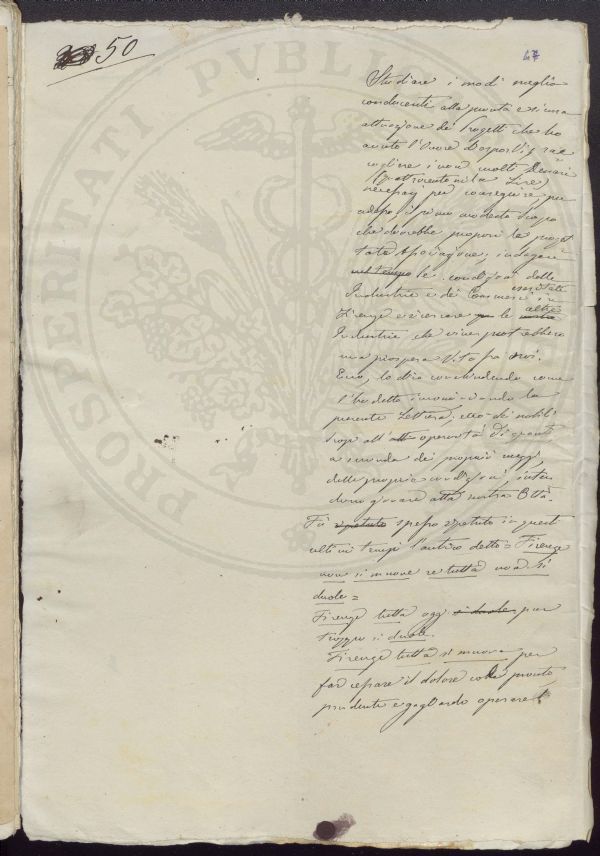 50
47
Studiare i modi meglio
conducenti alla pronta e sicura
attuazione dei Progetti che ho
avuto l'onore d'esporVi; rac
cogliere i non molti Denari
(Quattrocentomila Lire)
necessarj per conseguire, per
adesso, il primo modesto scopo
che dovrebbe proporsi la proget
tata Associazione; indagare
le condizioni delle
Industrie e dei Commerci esercitati in
Firenze e ricercare le altre
Industrie che viver potrebbero
una prospera Vita fra noi.
Ecco, lo dirò concludendo come
l'ho detto incominciando la
presente Lettera, ecco dei nobili
scopi all'operosità di quanti
a seconda dei proprii mezzi,
delle proprie condizioni, inten
dono giovare alla nostra Città.
Fu spesso ripetuto in questi
ultimi tempi l'antico detto = Firenze
non si muove se tutta non si
duole =
Firenze tutta oggi pur
troppo si duole.
Firenze tutta si muova per
far cessare il dolore col pronto,
prudente e gagliardo operare!
PROSPERITATI PVBLIC